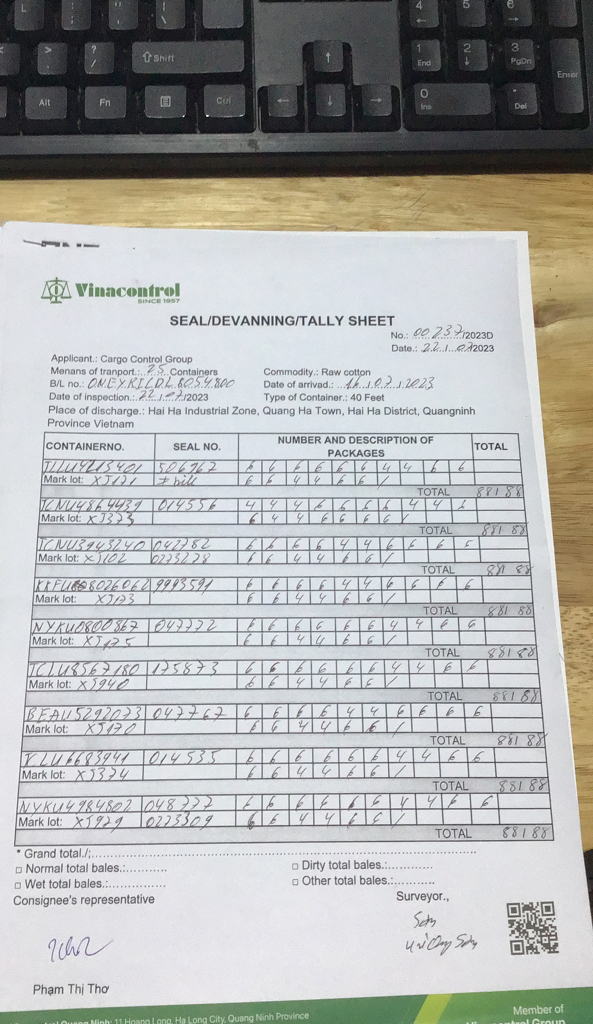 L
4
5
6
←
→
>
?
/
⇧ Shift
↑
1
End
2
↓
3
PgDn
Enter
Alt
Fn
Ctrl
←
↓
→
0
Ins
.
Del
Vinacontrol
SINCE 1957
SEAL/DEVANNING/TALLY SHEET
No.: 00237/2023D
Date.: 22/07/2023
Applicant.: Cargo Control Group
Menans of tranport.: 25 Containers
Commodity.: Raw cotton
B/L no.: ONEYRICDL8054800
Date of arrivad.: 16/07/2023
Date of inspection.: 22/07/2023
Type of Container.: 40 Feet
Place of discharge.: Hai Ha Industrial Zone, Quang Ha Town, Hai Ha District, Quangninh
Province Vietnam
CONTAINERNO. SEAL NO. NUMBER AND DESCRIPTION OF PACKAGES TOTAL
TLLU4213401 506962 6 6 6 6 6 6 4 4 6 6
Mark lot: XJ171 6 6 4 4 6 6 /
TOTAL 88/88
TCNU4864439 014556 4 4 4 6 6 6 6 4 4 6
Mark lot: XJ373 6 4 4 6 6 6 6 /
TOTAL 88/88
TCNU3943240 042782 6 6 6 6 4 4 6 6 6 6
Mark lot: XJ102 0223278 6 6 4 4 6 6 /
TOTAL 88/88
KKFU8026062 9993591 6 6 6 6 4 4 6 6 6 6
Mark lot: XJ173 6 6 4 4 6 6 /
TOTAL 88/88
NYKU0800867 047772 6 6 6 6 6 6 4 4 6 6
Mark lot: XJ175 6 6 4 4 6 6 /
TOTAL 88/88
TCLU8567180 175873 6 6 6 6 6 6 4 4 6 6
Mark lot: XJ940 6 6 4 4 6 6 /
TOTAL 88/88
BEAU5292073 047767 6 6 6 6 4 4 6 6 6 6
Mark lot: XJ170 6 6 4 4 6 6 /
TOTAL 88/88
TLLU6683941 014535 6 6 6 6 6 6 4 4 6 6
Mark lot: XJ374 6 6 4 4 6 6 /
TOTAL 88/88
NYKU4984802 048777 6 6 6 6 6 6 4 4 6 6
Mark lot: XJ929 0223309 6 6 4 4 6 6 /
TOTAL 88/88
* Grand total./;
□ Normal total bales.:
□ Dirty total bales.:
□ Wet total bales.:
□ Other total bales.:
Consignee's representative
Surveyor.,
Phạm Thị Thơ
Quang Ninh: 11 Hoang Long, Ha Long City, Quang Ninh Province
Member of
Vinacontrol Group